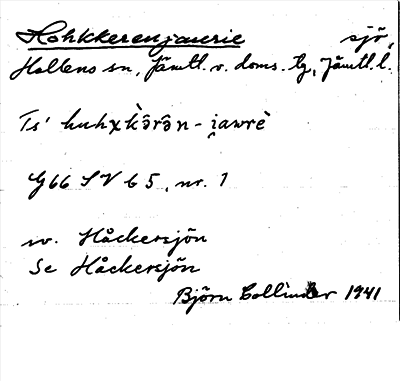 Hohkkerenjaurie sjö,
Hallens sn, Jämtl. v. doms. tg, Jämtl. l.
Ts' huhχk̀ə̑rə̑n - i̯awrè
G66 SV b 5, nr. 1
sv. Håckersjön
Se Håckersjön
Björn Collinder 1941